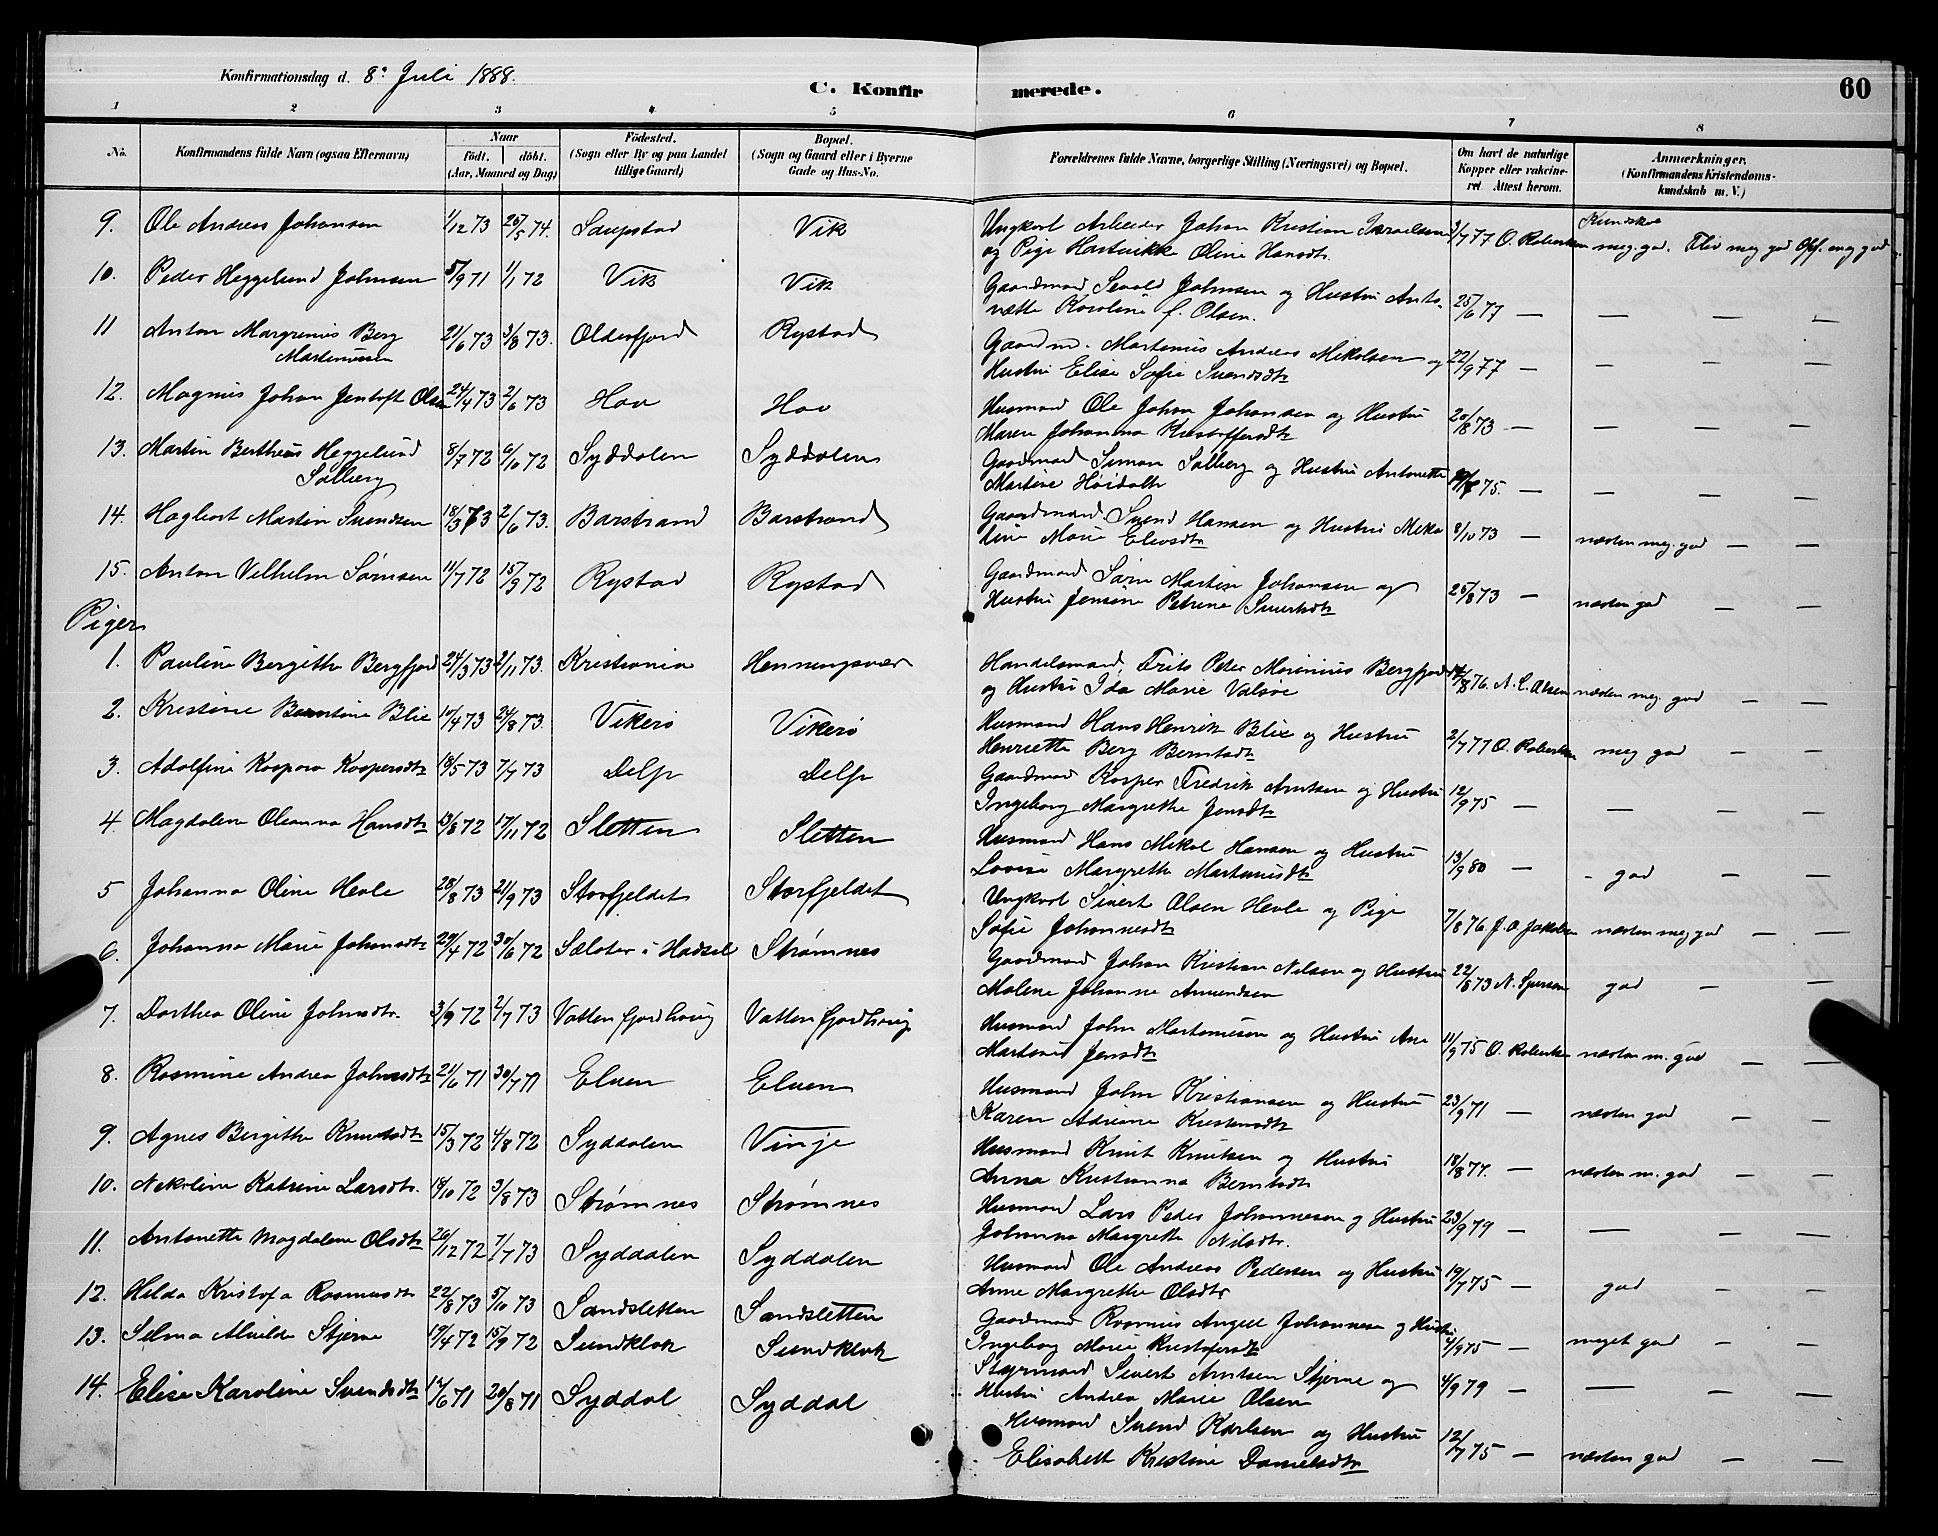 Konfirmationsdag d. 8. Juli 1888.
C. Konfirmerede.
60
1 2 3 4 5 6 7 8
No.
Konfirmandens fulde Navn (ogsaa Efternavn)
Naar
födt. döbt.
(Aar, Maaned og Dag)
Födested.
(Sogn eller By og paa Landet
tillige Gaard)
Bopæl.
(Sogn og Gaard eller i Byerne
Gade og Hus-No.
Forældrenes fulde Navne, borgerlige Stilling (Næringsvei) og Bopæl.
Om havt de naturlige
Kopper eller vakcine-
ret. Attest herom.
Anmærkninger.
(Konfirmandens Kristendoms-
kundskab m. V.)
9. Ole Andreas Johansen 1/12 73 25/5 74. Saupstad Vik Ungkarl Arbeider Johan Kristian Israelsen 2/7 77 O. Robertsen Kundskab meg. god. Flid meg god Opf. meg god
og Pige Hartvikke Oline Hansdtr.
10. Peder Heggelund Johnsen 5/9 71 1/1 72 Vik Vik Gaardmand Sevald Johnsen og Hustru Anto-
nette Karoline f. Olsen. 25/6 77 — — — —
11 Anton Margrenius Berg 21/6 73 3/8 73. Olderfjord Rystad Gaardm. Martenius Andreas Mikalsen og 22/9 77 — — — —
Martenusen Hustru Elise Sofie Svendsdtr
12. Magnus Johan Jentoft Olsen 24/4 73 2/6 73 Hov Hov Husmand Ole Johan Johansen og Hustru 20/8 73 — — — —
Maren Johanna Kristoffersdtr
13. Martin Bertheus Heggelund 8/7 72 6/10 72 Syddalen Syddalen Gaardmand Simon Solberg og Hustru Antonette
Solberg Martine Høidahl 75. — — — —
14. Hagbart Martin Svendsen 18/3 73 2/6 73. Barstrand Barstrand Gaardmand Svend Hansen og Hustru Mika
line Marie Eliasdtr 8/10 73 — næsten meg. god — —
15. Anton Vilhelm Sørnsen 11/7 72 15/9 72 Rystad Rystad Gaardmand Sørn Martin Johansen og
Hustru Jensine Petrine Sivertsdtr 25/8 73 — næsten god — —
Piger
1. Pauline Bergithe Bergfjord 24/3 73 2/11 73. Kristiania Henningsvær Handelsmand Frits Peter Marenius Bergfjord
og Hustru Ida Marie Valsøe 14/8 76. N. C. Olsen næsten meg. god — —
2. Kristine Berntine Blix 10/4 73 24/8 73. Vikerø Vikerø Husmand Hans Henrik Blix og Hustru
Henriette Berg Berntsdtr 2/7 77 O. Robertsen meg god — —
3. Adolfine Kaspara Kaspersdtr 18/5 73 7/7 73 Delp Delp Gaardmand Kasper Fredrik Arntsen og Hustru 12/9 75 — — — —
Ingeborg Margrethe Jensdtr
4. Magdalena Oleanna Hansdtr 13/8 72 17/11 72 Sletten Sletten Husmand Hans Mikal Hansen og Hustru
Lovise Margrethe Martinusdtr 13/9 80 — god — —
5 Johanna Oline Hevle 28/8 73 21/9 73 Storfjeldet Storfjeldet Ungkarl Sivert Olsen Hevle og Pige
Sofie Johannesdtr 7/8 76. J. A. Jakobsen næsten meg god — —
6. Johanna Marie Johansdtr 29/4 72 30/6 72 Sæloter i Hadsel Strømnes Gaardmand Johan Kristian Nilsen og Hustru
Malene Johanne Amundsen 22/8 73 N. Iversen god — —
7. Dorthea Oline Johnsdtr. 3/9 72 2/7 73 Vattenfjordhaug Vattenfjordhaug Husmand John Martenusen og Hustru Ane
Martine Jensdtr 11/9 75 O. Robertsen næsten m. god — —
8. Rasmine Andrea Johnsdtr 21/6 71 30/7 71 Elven Elven Husmand John Kristiansen og Hustru
Karen Adriane Kristensdtr 23/9 71 — næsten god — —
9. Agnes Bergithe Knutsdtr 15/3 72 4/8 72 Syddalen Vinje Husmand Knut Knutsen og Hustru
Anna Kristianna Berntsdtr 18/8 77. — næsten m. god — —
10. Nekoline Katrine Larsdtr. 18/10 72 3/8 73 Strømnes Strømnes Husmand Lars Peder Johannesen og Hustru 23/9 79 — — — —
Johanna Margrethe Nilsdtr.
11. Antonette Magdalena Olsdtr 26/12 72 7/7 73 Syddalen Syddalen Husmand Ole Andreas Pedersen og Hustru 19/7 75 — god — —
Anne Margrethe Olsdtr
12. Hilda Kristofa Rasmusdtr 22/8 73 5/10 73 Sandsletten Sandsletten Gaardmand Rasmus Angell Johannesen og Hustru
Ingeborg Marie Kristofersdtr 4/9 75 — meget god — —
13. Selma Alvilde Stjerne 19/4 72 15/9 72 Sundklak Sundklak Styrmand Sivert Arntsen Stjerne og 4/9 79 — — — —
Hustru Andrea Marie Olsen
14. Elise Karoline Svendsdtr 17/6 71 20/8 71 Syddal Syddal Husmand Svend Karlsen og Hustru
Elisabeth Kristine Danielsdtr 12/7 75 — næsten god — —